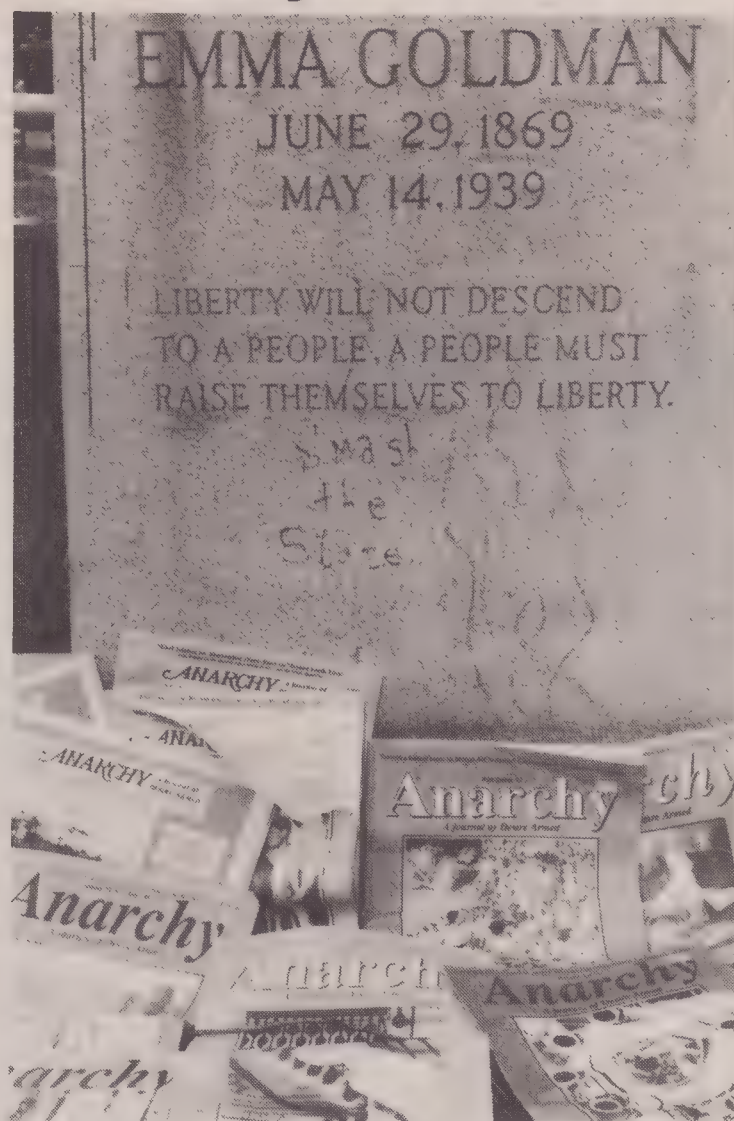 EMMA GOLDMAN
JUNE 29, 1869
MAY 14, 1939
LIBERTY WILL NOT DESCEND
TO A PEOPLE, A PEOPLE MUST
RAISE THEMSELVES TO LIBERTY.
Smash
the
State
ANARCHY
ANAR
ANARCHY
Anarchy
A Journal of Desire Armed
rchy
Desire Armed
Anarchy
Anarch
Anarchy
archy